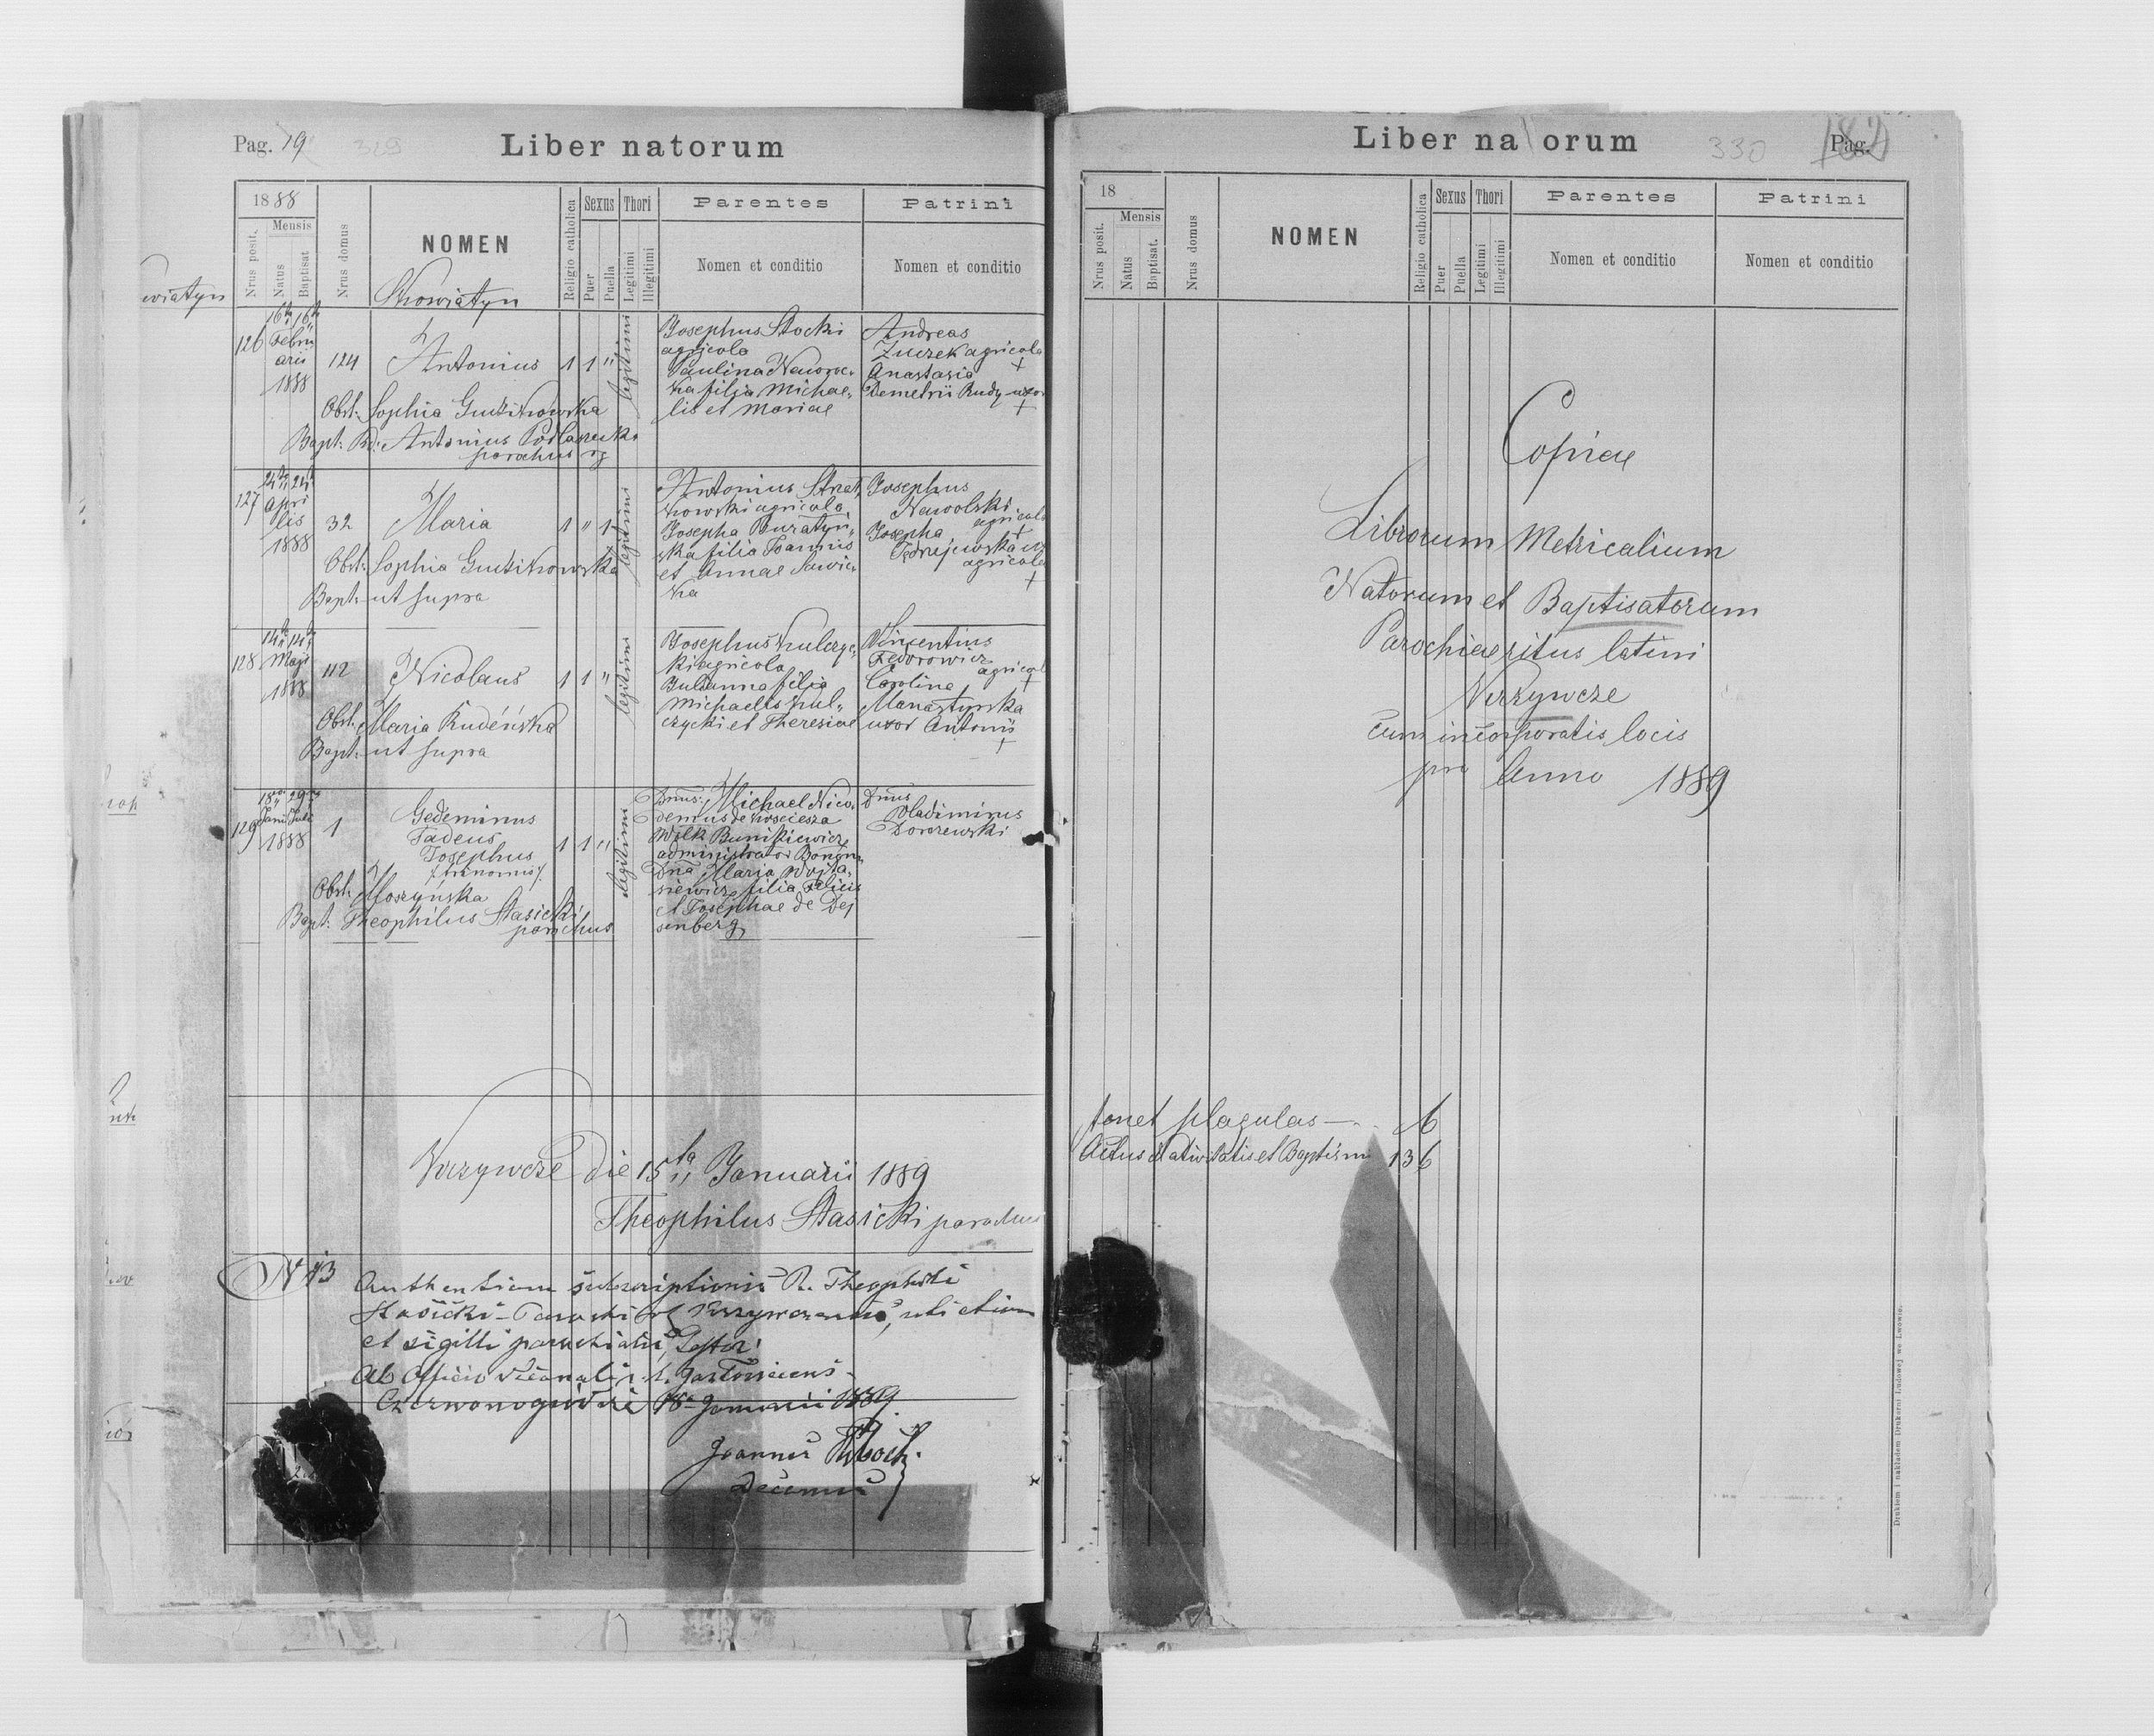 Pag. 19
329
Liber natorum
1888
Mensis
Nrus posit.
Natus
Baptisat.
Nrus domus
NOMEN
Religio catholica
Sexus
Puer
Puella
Thori
Legitimi
Illegitimi
Parentes
Nomen et conditio
Patrini
Nomen et conditio
wiatyn
126
16ta 16ta
Febru
arii
1888
124
Antonius
1 1 "
legitimi
Josephus Stocki
agricola
Paulina Nawroc-
ka filia Michae-
lis et Mariae
Andreas
Zuczek agricola
+
Anastasia
Demetrii Rudy uxor
+
Obst: Sophia
Bapt. Antonius
parochus rg
127
24ta 24ta
Apri
lis
1888
32
Maria
1 " 1
legitimi
Antonius
kowski agricola
Josepha Buratyń-
ska filia Joannis
et Annae Sawic-
ka
Josephus
Nawolski
agricola
+
Josepha
agricola
+
Obst: Sophia
Bapt. ut supra
128
14ta 14ta
Maji
1888
112
Nicolaus
1 1 "
legitimi
Josephus Kulczyc-
ki agricola
Julianna filia
Michaelis Kul-
czycki et Theresiae
Vincentius
Fedorowicz
agricola
+
Carolina
Manastyrska
uxor Antonii
+
Obst: Maria Rudeńska
Bapt. ut supra
129
Juli
1888
1
Gedeminus
Tadeus
Josephus
/trinomis/.
1 1 "
legitimi
Dnus. Michael Nico-
demus de Kosciesza
Wolk Bunikiewicz
administrator
Dna Maria Wojta-
siewicz filia Felicis
et Josephae de Dej
senberg
Dnus
Vladimirus
Dorozewski
Obst: Moszyńska
Bapt. Theophilus Stasicki
parochus
Krzywcze die 15ta Januarii 1889
Theophilus Stasicki parochus
N 13
subscriptionis R. Theophili
Stasicki uti etiam
et sigilli parochialis testor
Ab Officio Decanali
18 Januarii 1889
Joannes
Decanus
Liber natorum
330
182
Pag.
18
Mensis
Nrus posit.
Natus
Baptisat.
Nrus domus
NOMEN
Religio catholica
Sexus
Puer
Puella
Thori
Legitimi
Illegitimi
Parentes
Nomen et conditio
Patrini
Nomen et conditio
Copiae
Librorum Metricalium
Natorum et Baptisatorum
Parochiae ritus latini
Krzywcze
cum incorporatis locis
pro Anno 1889
plagulas — 6
Actus Nativitatis et Baptismi 136
Drukiem i nakładem Drukarni Ludowej we Lwowie.